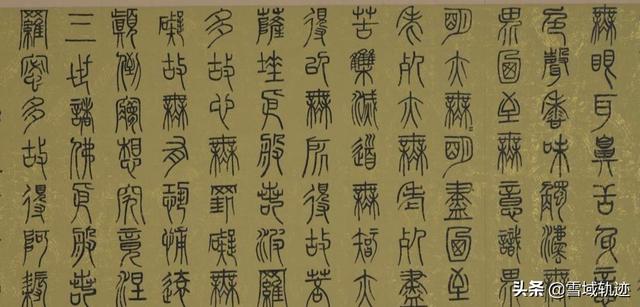 無眼耳鼻舌身意
色聲香味觸法無
界乃至無意識界
明亦無明盡乃至
老死亦無老死盡
苦集滅道無智亦
得以無所得故菩
薩埵依般若波羅
多故心無罣礙無
礙故無有恐怖遠
顛倒夢想究竟涅
三世諸佛依般若
羅蜜多故得阿耨
头条 @雪域轨迹